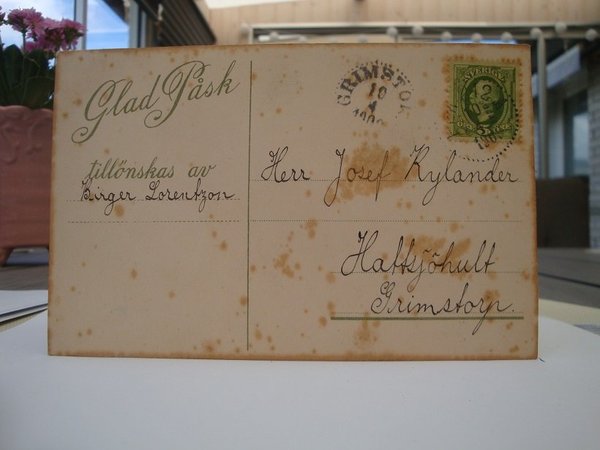 Glad Påsk
tillönskas av
Birger Lorentzon
GRIMSTOR
10
4
SVERIGE
5
Herr Josef Kylander
Hattsjöhult
Grimstorp.